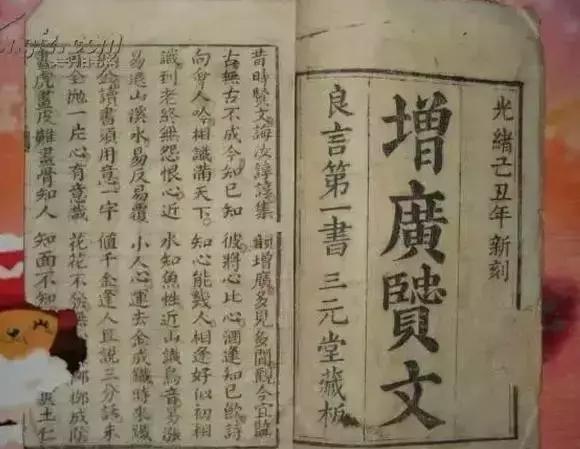 光緒己丑年新刻
增廣賢文
良言第一書 三元堂藏板
昔時賢文誨汝諄諄集 韻增廣多見多聞觀今宜監
古無古不成今知己知 彼將心比心酒逢知已飲詩
向會人吟相識滿天下 知心能幾人相逢好似初相
識到老終無怨恨心近 水知魚性近山識鳥音易漲
易退山溪水易反易覆 小人心運去金成鐵時來鐵
似金讀書須用意一字 值千金逢人且說三分話未
可全拋一片心有意栽 花花不發無 柳柳成陰
畫虎畫皮難畫骨知人 知面不知 糞土仁